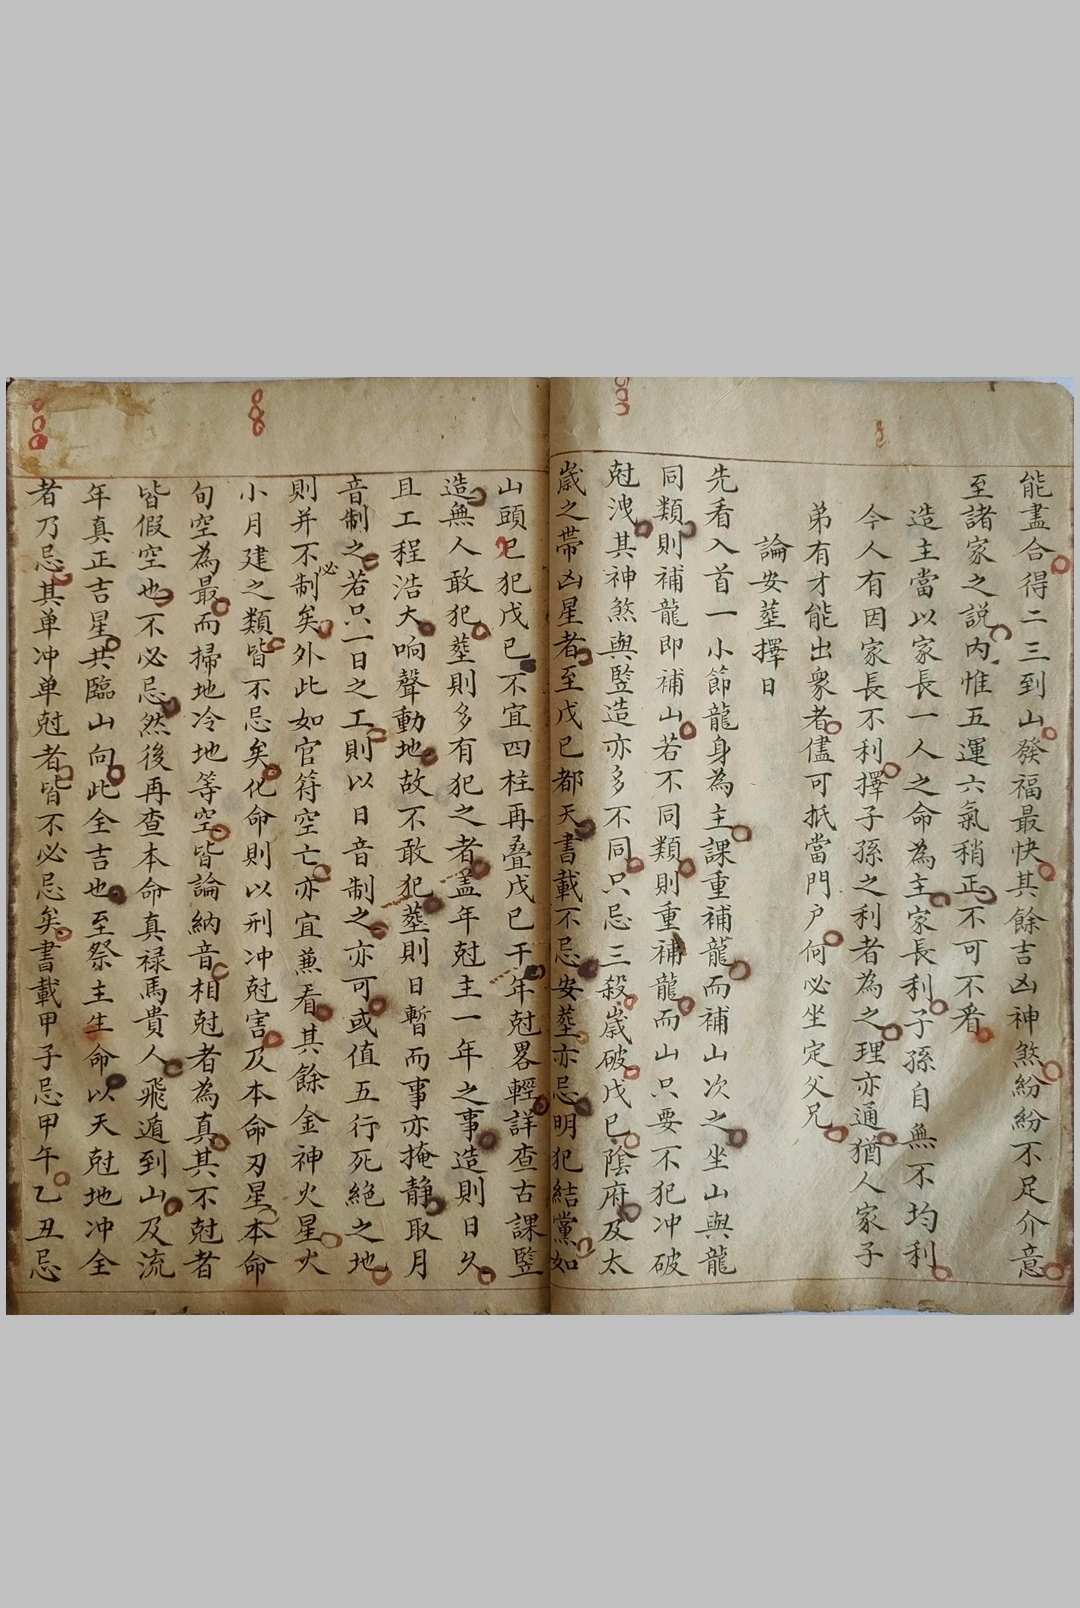 能盡合得二三到山發福最快其餘吉凶神煞紛紛不足介意
至諸家之説内惟五運六氣稍正不可不看
造主當以家長一人之命為主家長利子孫自無不均利
今人有因家長不利擇子孫之利者為之理亦通猶人家子
弟有才能出衆者儘可抵當門户何必坐定父兄
論安葬擇日
先看入首一小節龍身為主課重補龍而補山次之坐山與龍
同類則補龍即補山若不同類則重補龍而山只要不犯冲破
尅洩其神煞與豎造亦多不同只忌三殺歲破戊巳陰府及太
歲之帶凶星者至戊巳都天書載不忌安葬亦忌明犯結黨如
山頭巳犯戊巳不宜四柱再叠戊巳干年尅畧輕詳查古課豎
造無人敢犯葬則多有犯之者盖年尅主一年之事造則日久
且工程浩大响聲動地故不敢犯葬則日暫而事亦掩静取月
音制之若只一日之工則以日音制之亦可或值五行死絶之地
則并不必制矣外此如官符空亡亦宜兼看其餘金神火星大
小月建之類皆不忌矣化命則以刑冲尅害及本命刃星本命
旬空為最而掃地冷地等空皆論納音相尅者為真其不尅者
皆假空也不必忌然後再查本命真禄馬貴人飛遁到山及流
年真正吉星共臨山向此全吉也至祭主生命以天尅地冲全
者乃忌其单冲单尅者皆不必忌矣書載甲子忌甲午乙丑忌